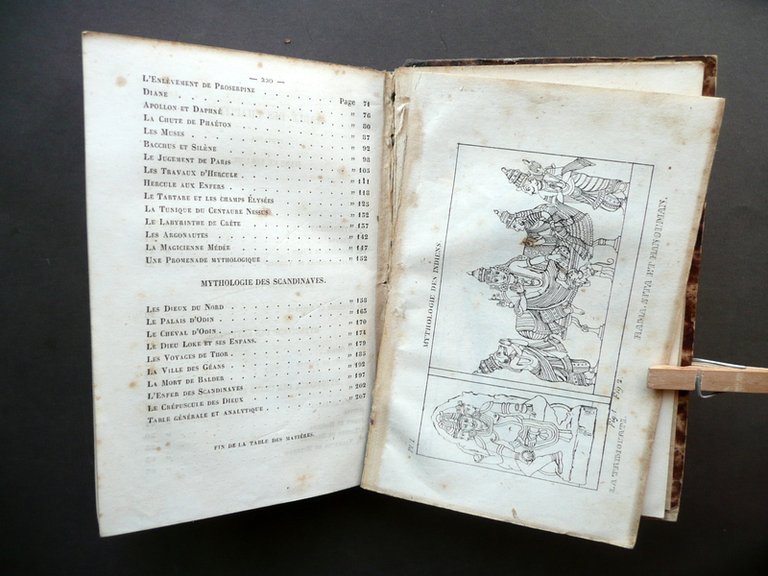 — 220 —
L'Enlèvement de Proserpine
Diane . . . . . . . . Page 71
Apollon et Daphné . . . . . . . . " 76
La Chute de Phaéton . . . . . . . . " 80
Les Muses . . . . . . . . " 87
Bacchus et Silène . . . . . . . . " 92
Le Jugement de Paris . . . . . . . . " 98
Les Travaux d'Hercule . . . . . . . . " 105
Hercule aux Enfers . . . . . . . . " 111
Le Tartare et les champs Élysées " 118
La Tunique du Centaure Nessus . . . . " 125
Le Labyrinthe de Crète . . . . . . " 132
Les Argonautes . . . . . . . . " 137
La Magicienne Médée . . . . . . . . " 142
Une Promenade mythologique . . . . . . " 147
" 152
MYTHOLOGIE DES SCANDINAVES.
Les Dieux du Nord . . . . . . . . " 158
Le Palais d'Odin . . . . . . . . " 165
Le Cheval d'Odin . . . . . . . . " 170
Le Dieu Loke et ses Enfans. . . . . . " 174
Les Voyages de Thor . . . . . . . . " 179
La Ville des Géans . . . . . . . . " 185
La Mort de Balder . . . . . . . . " 192
L'Enfer des Scandinaves . . . . . . " 197
Le Crépuscule des Dieux . . . . . . " 202
Table générale et analytique . . . . . . " 207
FIN DE LA TABLE DES MATIÈRES.
MYTHOLOGIE DES INDIENS.
Fig 1.
Fig 2.
LA TRIMOURTI.
RAMA, SITA ET HANOUMAN.